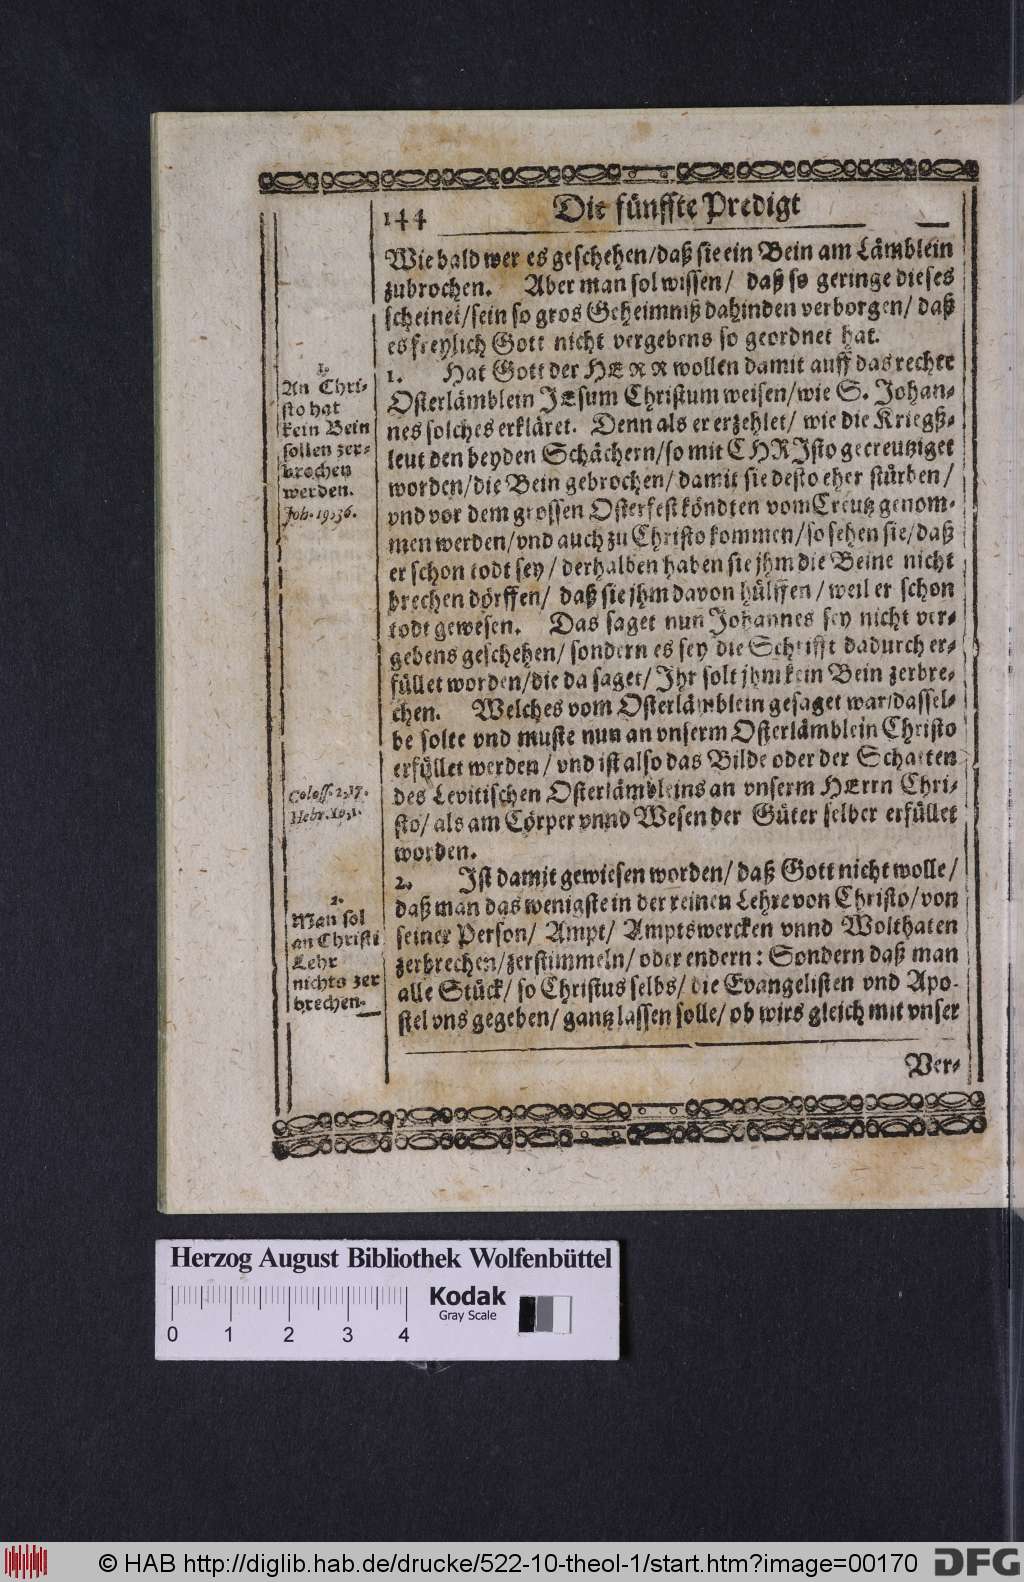 144
Die fünffte Predigt
Wie bald wer es geschehen/daß sie ein Bein am Lämblein
zubrochen. Aber man sol wissen/ daß so geringe dieses
scheinet/sein so gros Geheimniß dahinden verborgen/ daß
es freylich Gott nicht vergebens so geordnet hat.
1. Hat Gott der HERR wollen damit auff das rechte
Osterlämblein JEsum Christum weisen/wie S. Johan-
nes solches erkläret. Denn als er erzehlet/ wie die Kriegß-
leut den beyden Schächern/so mit CHRJsto gecreutziget
worden/die Bein gebrochen/ damit sie desto eher stürben/
vnd vor dem grossen Osterfest köndten vom Creutz genom-
men werden/vnd auch zu Christo kommen/so sehen sie/daß
er schon todt sey/ derhalben haben sie jhm die Beine nicht
brechen dörffen/ daß sie jhm davon hülffen/ weil er schon
todt gewesen. Das saget nun Johannes sey nicht ver-
gebens geschehen/ sondern es sey die Schrifft dadurch er-
füllet worden/die da saget/ Jhr solt jhm kein Bein zerbre-
chen. Welches vom Osterlämblein gesaget war/dassel-
be solte vnd muste nun an vnserm Osterlämblein Christo
erfüllet werden/ vnd ist also das Bilde oder der Schatten
des Levitischen Osterlämbleins an vnserm HErrn Chri-
sto/ als am Cörper vnnd Wesen der Güter selber erfüllet
worden.
2. Jst damit gewiesen worden/ daß Gott nicht wolle/
daß man das wenigste in der reinen Lehre von Christo/von
seiner Person/ Ampt/ Amptswercken vnnd Wolthaten
zerbrechen/zerstimmeln/ oder endern: Sondern daß man
alle Stück/ so Christus selbs/ die Evangelisten vnd Apo-
stel vns gegeben/ gantz lassen solle/ ob wirs gleich mit vnser
Ver-
1.
An Chri-
sto hat
kein Bein
sollen zer-
brochen
werden.
Joh. 19,36.
Coloss. 2,17.
Hebr. 10,1.
2.
Man sol
an Christi
Lehr
nichts zer
brechen.
Herzog August Bibliothek Wolfenbüttel
Kodak
Gray Scale
0 1 2 3 4
© HAB http://diglib.hab.de/drucke/522-10-theol-1/start.htm?image=00170
DFG